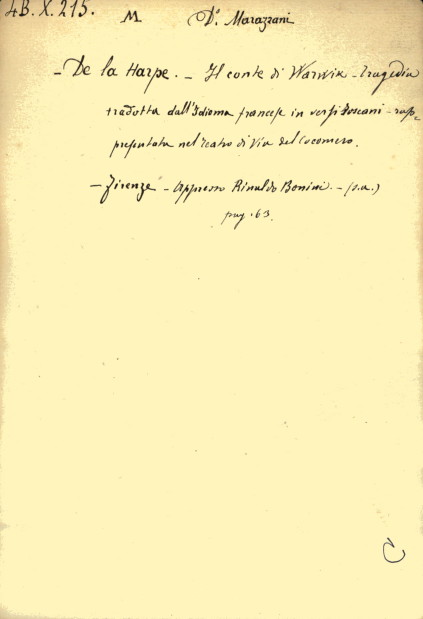 4B.X.215.
M D.º Marazzani
- De la Harpe. - Il conte di Warwik - tragedia
tradotta dall'Idioma francese in versi toscani - rap-
presentata nel teatro di Via del Cocomero.
- Firenze - Appresso Rinaldo Bonini. - (s.a.)
pag. 63.
C